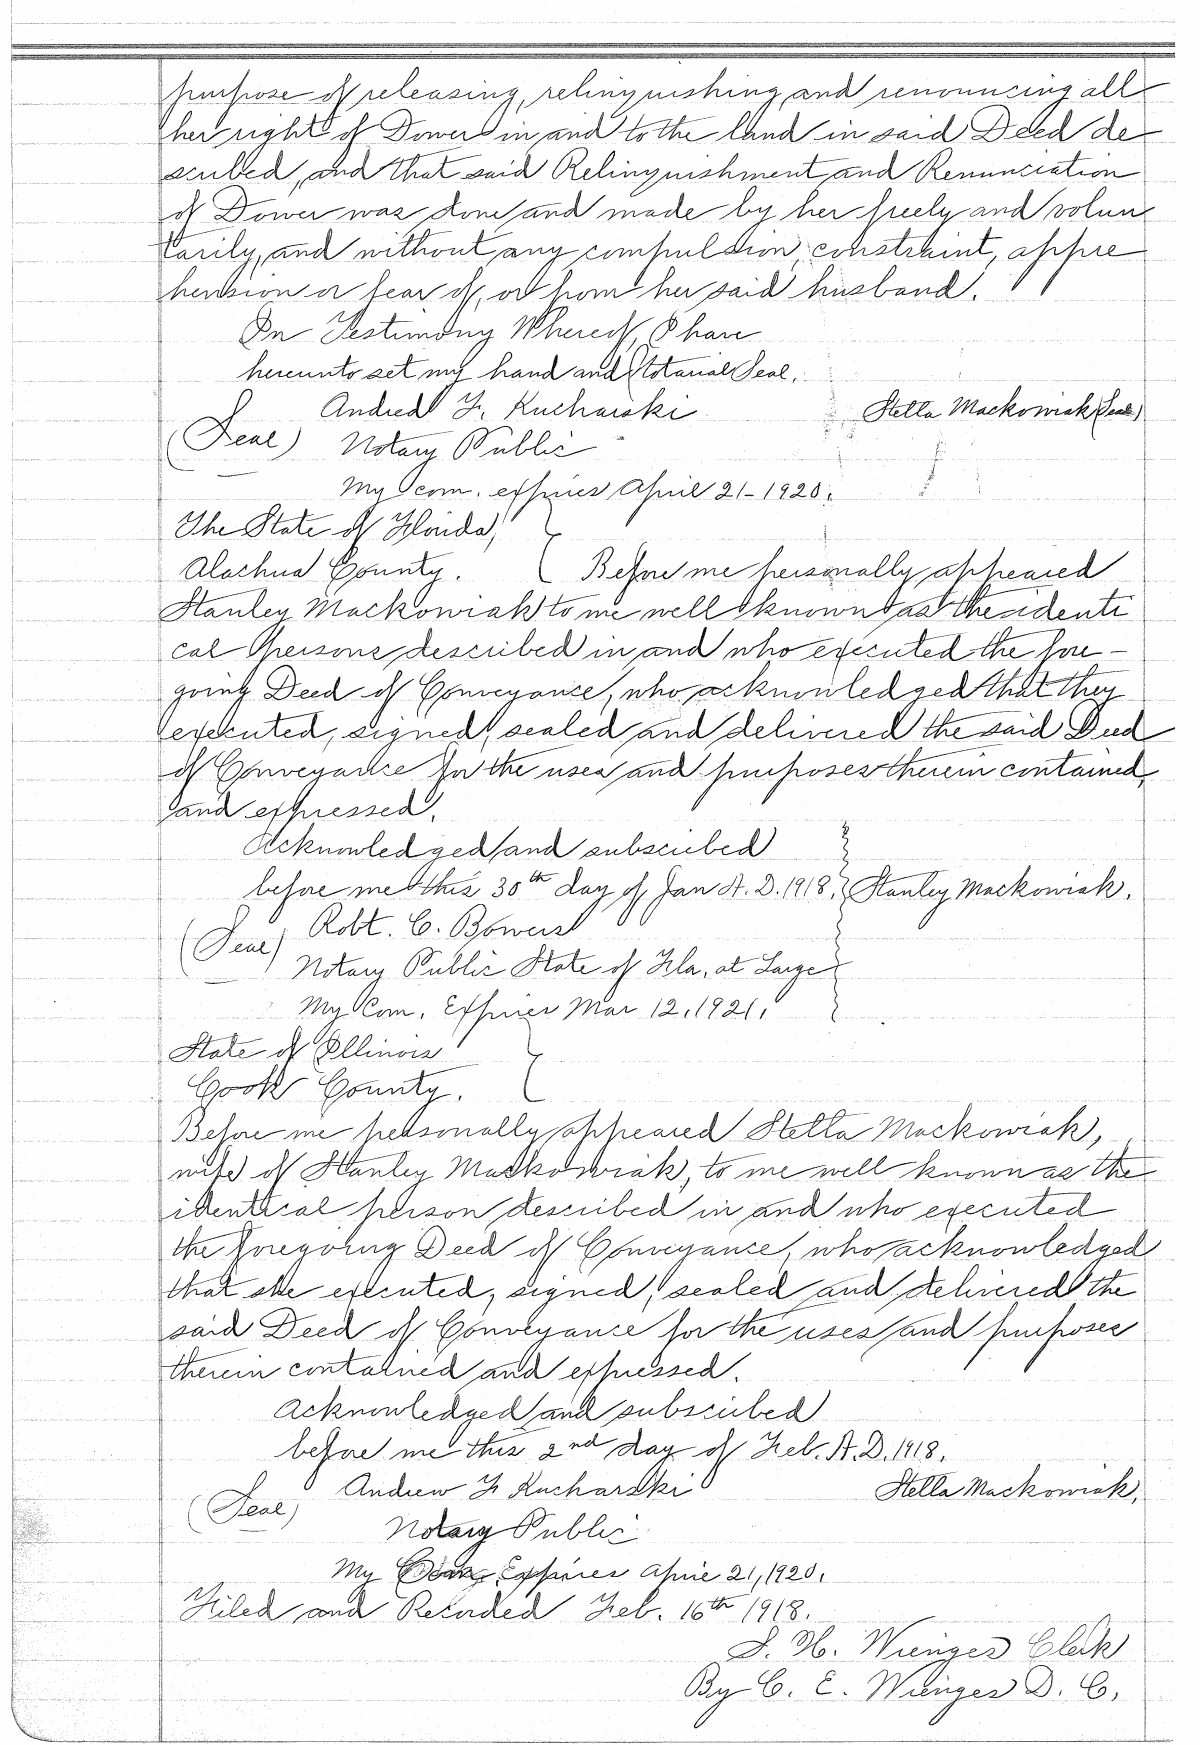 purpose of releasing, relinquishing and renouncing all
her right of Dower in and to the land in said Deed de
scribed, and that said Relinquishment and Renunciation
of Dower was done and made by her freely and volun
tarily, and without any compulsion, constraint, appre
hension or fear of, or from her said husband.
In Testimony Whereof, I have
hereunto set my hand and Notarial Seal.
Andred F. Kucharski Stella Mackowiak (Seal)
(Seal) Notary Public
My com. expires April 21-1920.
The State of Florida,
Alachua County. Before me personally appeared
Stanley Mackowiak to me well known as the identi
cal persons described in and who executed the fore-
going Deed of Conveyance, who acknowledged that they
executed, signed, sealed and delivered the said Deed
of Conveyance for the uses and purposes therein contained,
and expressed.
Acknowledged and subscribed
before me this 30th day of Jan A.D. 1918. Stanley Mackowiak.
(Seal) Robt. C. Bowers
Notary Public State of Fla, at Large
My Com. Expires Mar 12, 1921.
State of Illinois
Cook County.
Before me personally appeared Stella Mackowiak,
wife of Stanley Mackowiak, to me well known as the
identical person described in and who executed
the foregoing Deed of Conveyance, who acknowledged
that she executed, signed, sealed and delivered the
said Deed of Conveyance for the uses and purposes
therein contained and expressed.
Acknowledged and subscribed
before me this 2nd day of Feb. A.D. 1918.
(Seal) Andrew F Kucharski Stella Mackowiak.
Notary Public
My Com. Expires April 21, 1920.
Filed and Recorded Feb. 16th 1918.
S. H. Wienges Clerk
By C. E. Wienges D. C.